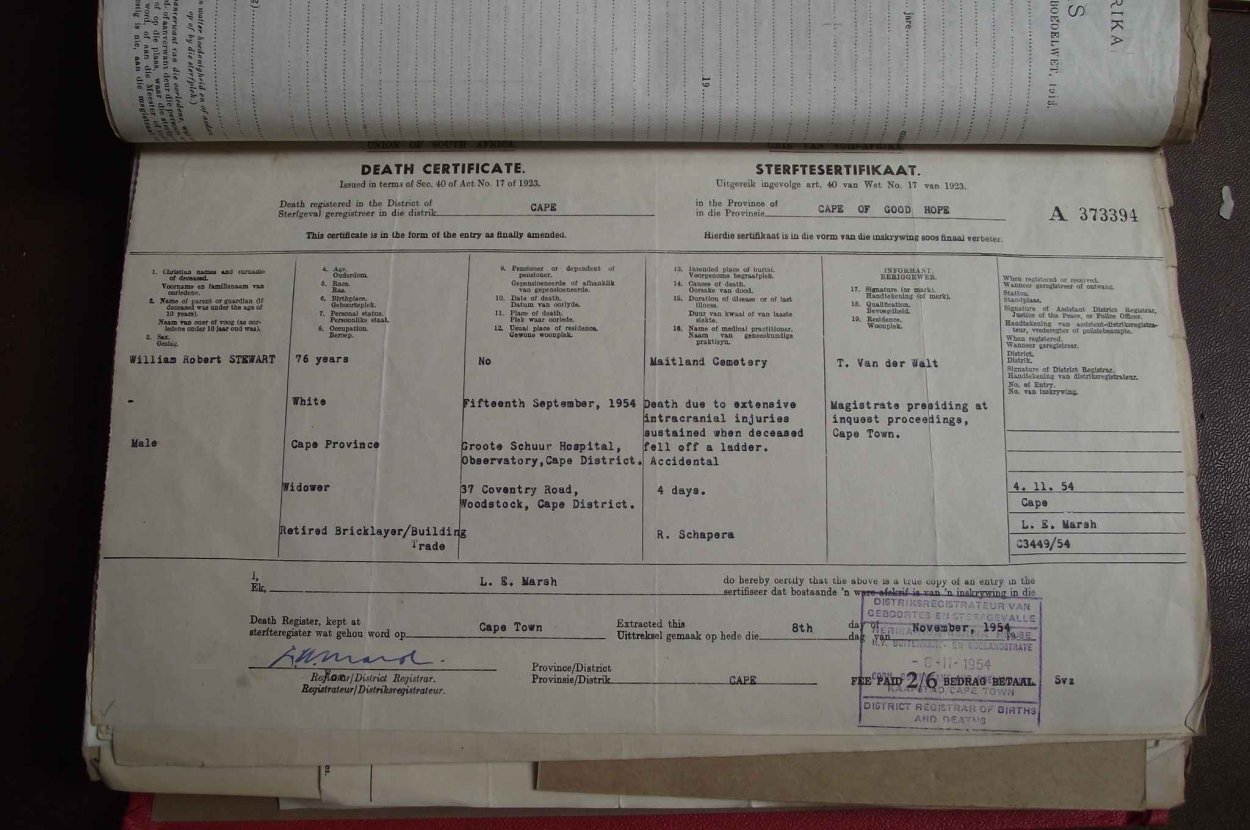 RIKA
S
BOEDELWET, 1913
jare
19
UNION OF SOUTH AFRICA
UNIE VAN SUID-AFRIKA
DEATH CERTIFICATE.
STERFTESERTIFIKAAT.
Issued in terms of Sec. 40 of Act No. 17 of 1923.
Uitgereik ingevolge art. 40 van Wet No. 17 van 1923.
Death registered in the District of
Sterfgeval geregistreer in die distrik CAPE
in the Province of
in die Provinsie CAPE OF GOOD HOPE
A 373394
This certificate is in the form of the entry as finally amended.
Hierdie sertifikaat is in die vorm van die inskrywing soos finaal verbeter.
1. Christian names and surname
of deceased.
Voorname en familienaam van
oorledene.
2. Name of parent or guardian (if
deceased was under the age of
10 years).
Naam van ouer of voog (as oor-
ledene onder 10 jaar oud was).
3. Sex.
Geslag.
4. Age.
Ouderdom.
5. Race.
Ras.
6. Birthplace.
Geboorteplek.
7. Personal status.
Persoonlike staat.
8. Occupation.
Beroep.
9. Pensioner or dependent of
pensioner.
Gepensioeneerde of afhanklik
van gepensioeneerde.
10. Date of death.
Datum van oorlyde.
11. Place of death.
Plek waar oorlede.
12. Usual place of residence.
Gewone woonplek.
13. Intended place of burial.
Voorgenome begraafplek.
14. Causes of death.
Oorsake van dood.
15. Duration of disease or of last
illness.
Duur van kwaal of van laaste
siekte.
16. Name of medical practitioner.
Naam van geneeskundige
praktisyn.
INFORMANT.
BERIGGEWER.
17. Signature (or mark).
Handtekening (of merk).
18. Qualification.
Bevoegdheid.
19. Residence.
Woonplek.
When registered or received.
Wanneer geregistreer of ontvang.
Station.
Standplaas.
Signature of Assistant District Registrar,
Justice of the Peace, or Police Officer.
Handtekening van assistent-distriksregistra-
teur, vrederegter of polisiebeampte.
When registered.
Wanneer geregistreer.
District.
Distrik.
Signature of District Registrar.
Handtekening van distriksregistrateur.
No. of Entry.
No. van inskrywing.
William Robert STEWART
-
Male
76 years
White
Cape Province
Widower
Retired Bricklayer/Building
Trade
No
Fifteenth September, 1954
Groote Schuur Hospital,
Observatory,Cape District.
37 Coventry Road,
Woodstock, Cape District.
Maitland Cemetery
Death due to extensive
intracranial injuries
sustained when deceased
fell off a ladder.
Accidental
4 days.
R. Schapera
T. Van der Walt
Magistrate presiding at
inquest proceedings,
Cape Town.
4. 11. 54
Cape
L. E. Marsh
C3449/54
I,
Ek, L. E. Marsh
do hereby certify that the above is a true copy of an entry in the
sertifiseer dat bostaande 'n ware afskrif is van 'n inskrywing in die
Death Register, kept at
sterfteregister wat gehou word op Cape Town
Extracted this
Uittreksel gemaak op hede die 8th
day of
dag van November, 1954
Registrar/District Registrar.
Registrateur/Distriksregistrateur.
Province/District
Provinsie/Distrik CAPE
FEE PAID 2/6 BEDRAG BETAAL
Svz
DISTRIKSREGISTRATEUR VAN
GEBOORTES EN STERFGEVALLE
-8-11-1954
KAAPSTAD, CAPE TOWN
DISTRICT REGISTRAR OF BIRTHS
AND DEATHS